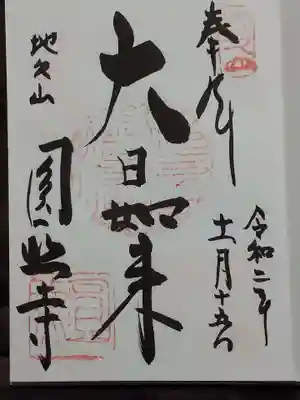 奉拝
令和二年
十一月十五日
大日如来
地久山
圓照寺